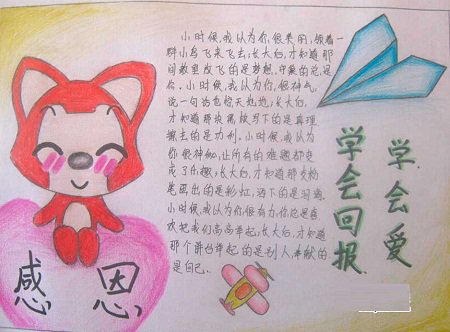 小时候,我认为你很美丽,领着一
群小鸟飞来飞去;长大后,才知道那
间教室放飞的是梦想,守巢的总是
你。小时候,我认为你很神气,
说一句话也惊天动地;长大后,
才知道那块黑板写下的是真理
擦去的是功利。小时候,我认为
你很神秘,让所有的难题都变
成了乐趣;长大后,才知道那支粉
笔画出的是彩虹,洒下的是泪滴。
小时候,我认为你很有力,你总是喜
欢把我们高高举起;长大后,才知道
那个讲台举起的是别人,奉献的
是自己.
学会爱
学会回报
感恩